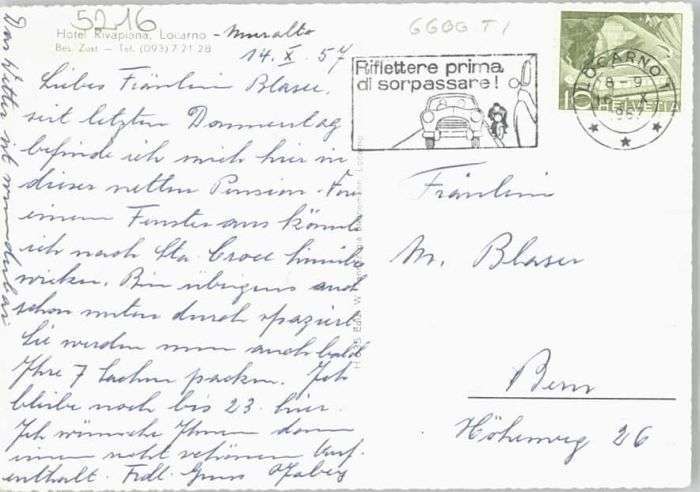 5216
6600 T1
Hotel Rivapiana, Locarno - Muralto
Bes. Zust — Tel. (093) 7 21 28
14. X. 57
Liebes Fräulein Blaser,
seit letzten Donnerstag
befinde ich mich hier in
dieser netten Pension. Von
einem Fenster aus könnte
ich nach Sta. Croce hinüber
winken. Bin übrigens auch
schon unten durch spaziert.
Sie werden nun auch bald
Ihre 7 Sachen packen. Ich
bleibe noch bis 23. hier.
Ich wünsche Ihnen dann
einen recht schönen Auf-
enthalt. Frdl. Gruss
Das Wetter ist wunderbar
Riflettere prima
di sorpassare!
LOCARNO 1
8-9
X
1957
10 HELVETIA
Fräulein
M. Blaser
Bern
Höheweg 26